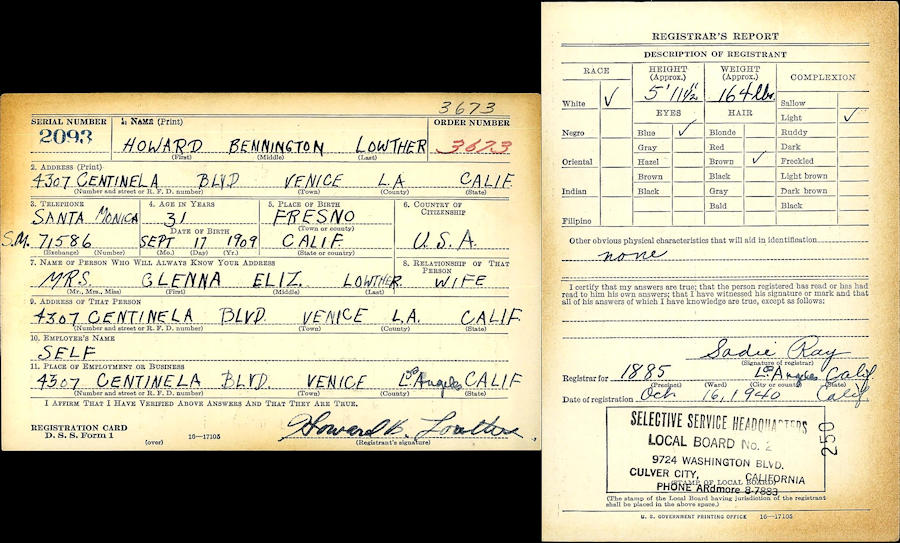 3673
SERIAL NUMBER 1. NAME (Print) ORDER NUMBER
2093 HOWARD BENNINGTON LOWTHER 3673
(First) (Middle) (Last)
2. ADDRESS (Print)
4307 CENTINELA BLVD VENICE L.A CALIF.
(Number and street or R. F. D. number) (Town) (County) (State)
3. TELEPHONE 4. AGE IN YEARS 5. PLACE OF BIRTH 6. COUNTRY OF CITIZENSHIP
SANTA MONICA 31 FRESNO
DATE OF BIRTH (Town or county)
S.M. 71586 SEPT 17 1909 CALIF. U.S.A.
(Exchange) (Number) (Mo.) (Day) (Yr.) (State or country)
7. NAME OF PERSON WHO WILL ALWAYS KNOW YOUR ADDRESS 8. RELATIONSHIP OF THAT PERSON
MRS. GLENNA ELIZ. LOWTHER WIFE
(Mr., Mrs., Miss) (First) (Middle) (Last)
9. ADDRESS OF THAT PERSON
4307 CENTINELA BLVD. VENICE L.A. CALIF
(Number and street or R. F. D. number) (Town) (County) (State)
10. EMPLOYER'S NAME
SELF
11. PLACE OF EMPLOYMENT OR BUSINESS
4307 CENTINELA BLVD. VENICE Los Angeles CALIF
(Number and street or R. F. D. number) (Town) (County) (State)
I AFFIRM THAT I HAVE VERIFIED ABOVE ANSWERS AND THAT THEY ARE TRUE.
REGISTRATION CARD
D. S. S. Form 1 (over) 16—17105 Howard B. Lowther
(Registrant's signature)
REGISTRAR'S REPORT
DESCRIPTION OF REGISTRANT
RACE HEIGHT (Approx.) WEIGHT (Approx.) COMPLEXION
White ✓ 5' 11½" 164 lbs. Sallow
EYES HAIR Light ✓
Negro Blue ✓ Blonde Ruddy
Gray Red Dark
Oriental Hazel Brown ✓ Freckled
Brown Black Light brown
Indian Black Gray Dark brown
Bald Black
Filipino
Other obvious physical characteristics that will aid in identification
none
I certify that my answers are true; that the person registered has read or has had
read to him his own answers; that I have witnessed his signature or mark and that
all of his answers of which I have knowledge are true, except as follows:
Sadie Ray
(Signature of registrar)
Registrar for 1885 Los Angeles Calif
(Precinct) (Ward) (City or county) (State)
Date of registration Oct 16, 1940 Calif.
SELECTIVE SERVICE HEADQUARTERS
LOCAL BOARD No. 2
9724 WASHINGTON BLVD.
CULVER CITY, CALIFORNIA
(STAMP OF LOCAL BOARD)
PHONE ARdmore 8-7883
250
(The stamp of the Local Board having jurisdiction of the registrant
shall be placed in the above space.)
U. S. GOVERNMENT PRINTING OFFICE 16—17105